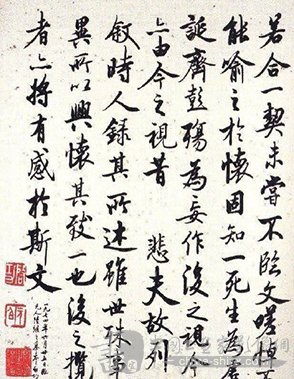 若合一契未嘗不臨文嗟悼
能喻之於懷固知一死生為虛
誕齊彭殤為妄作後之視今
亦由今之視昔 悲夫故列
敘時人錄其所述雖世殊事
異所以興懷其致一也後之攬
者亦將有感於斯文
一九七四年六月廿